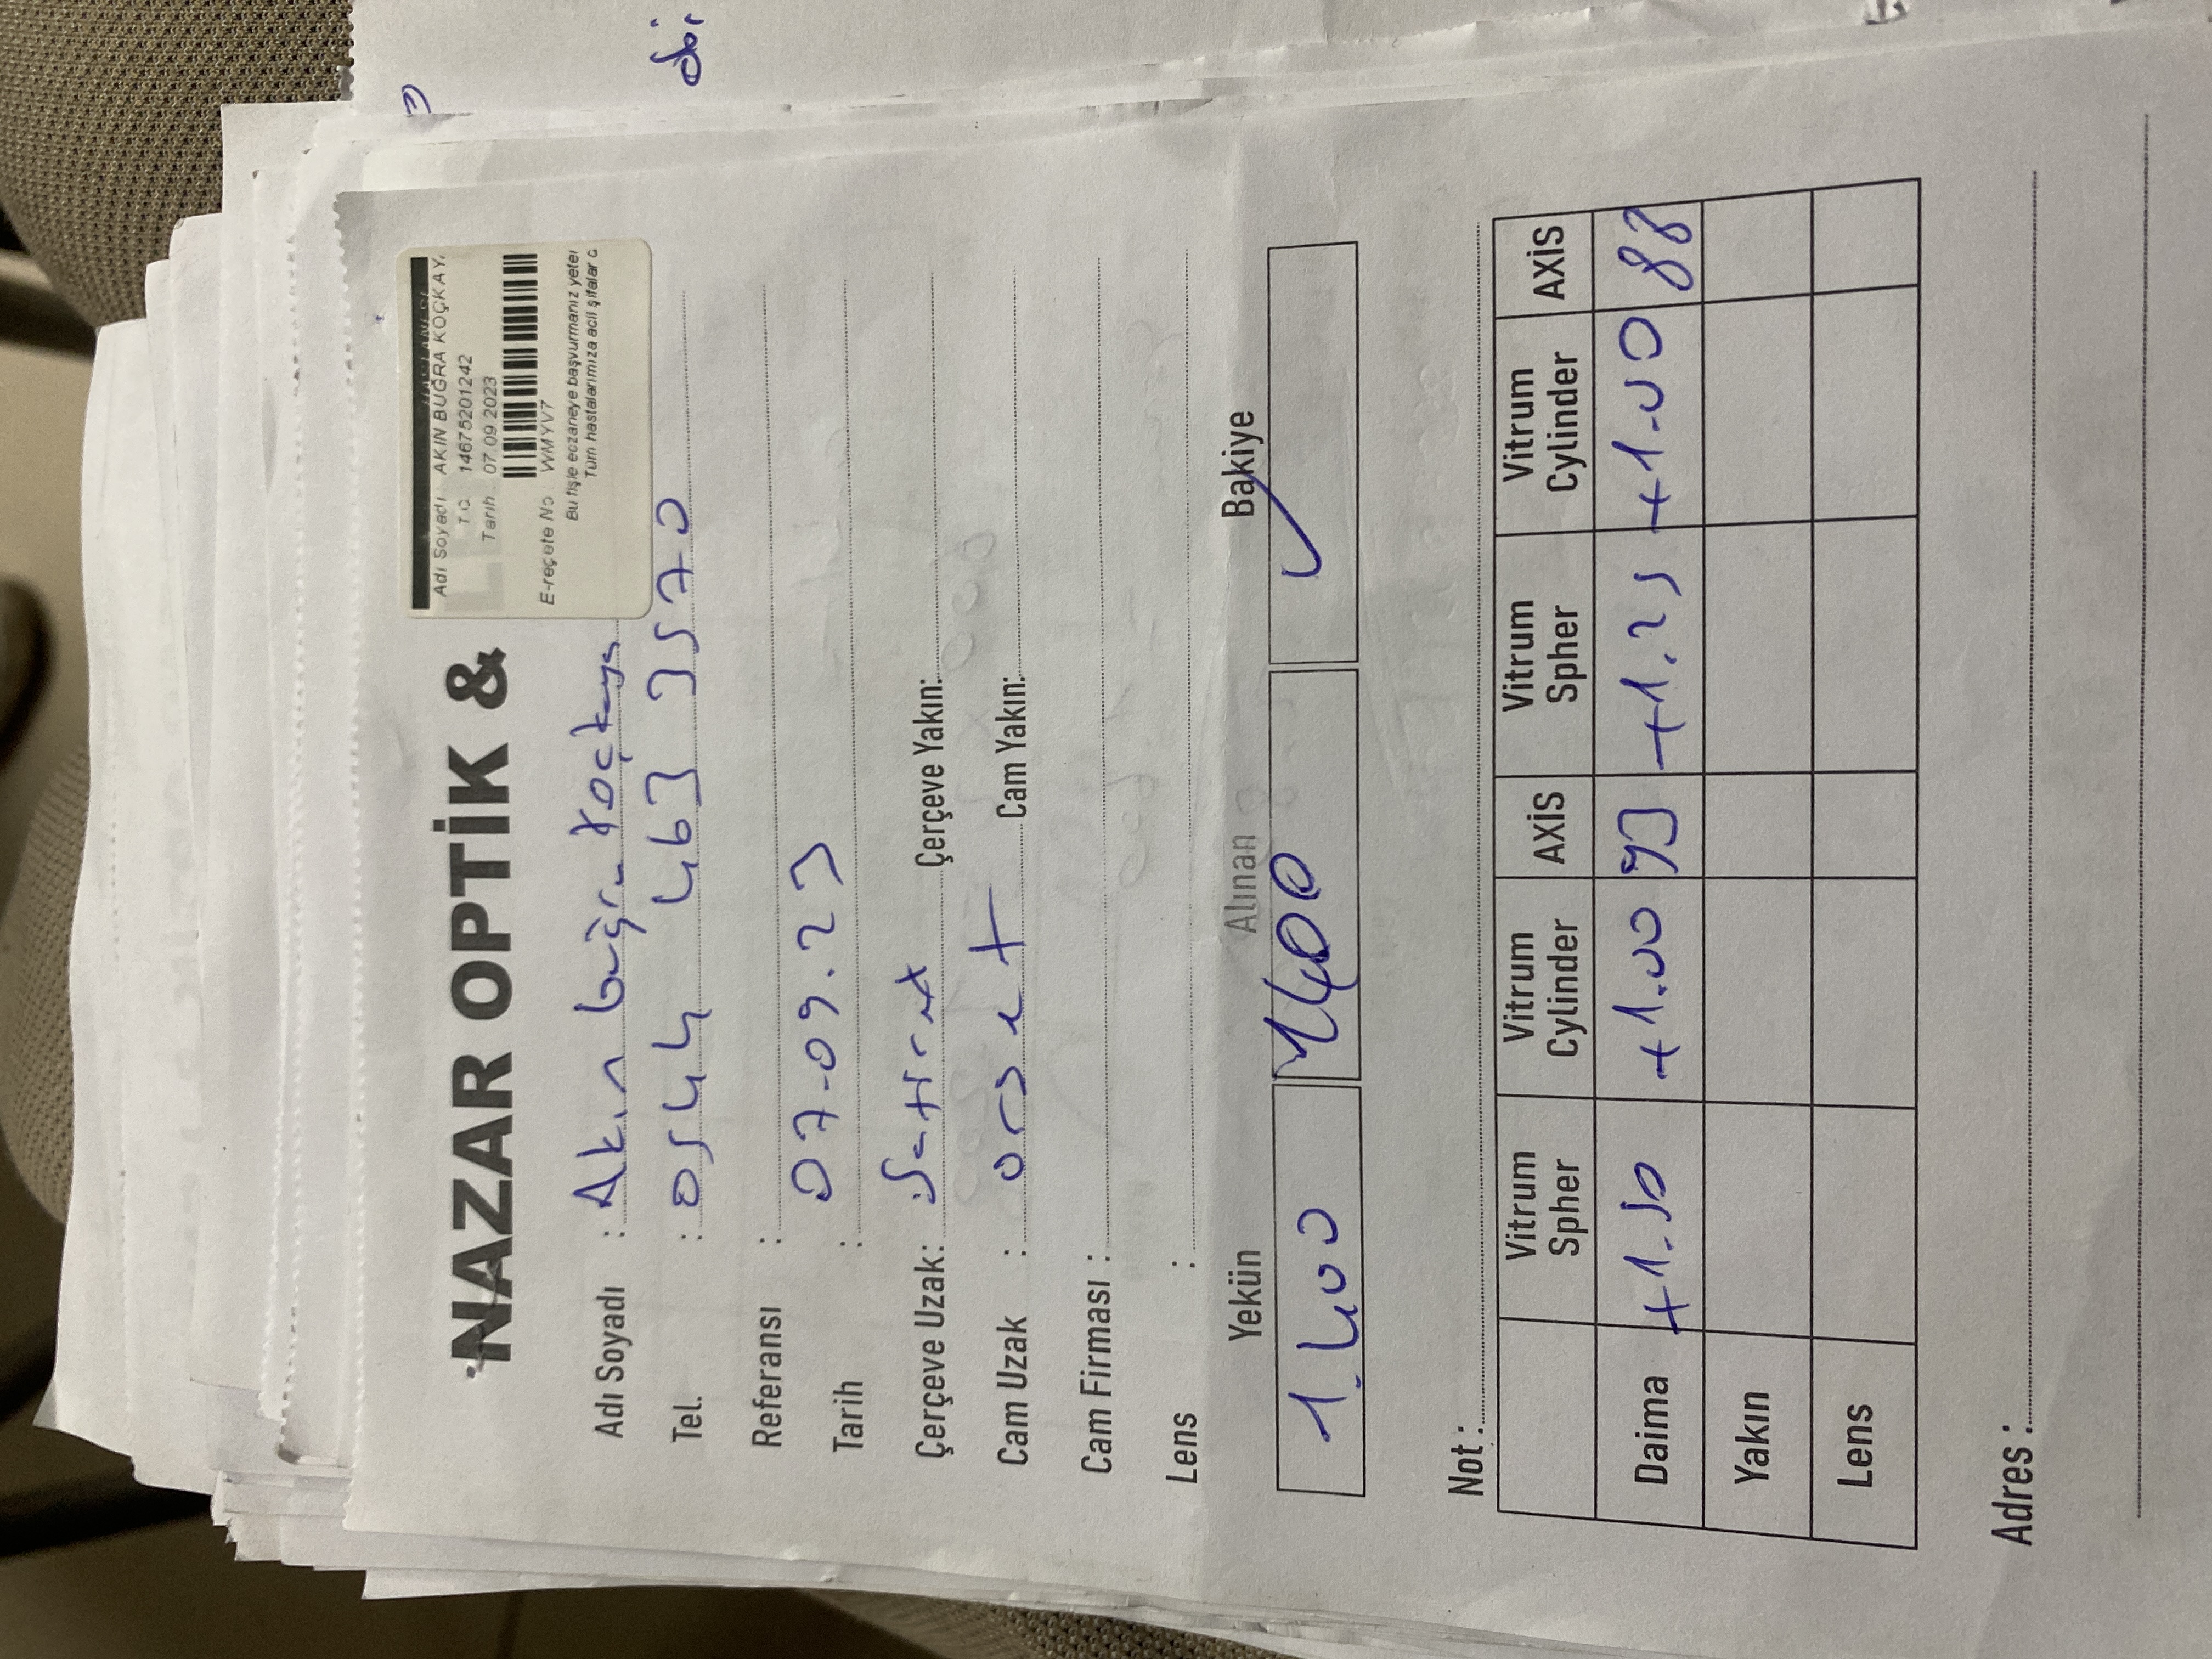 NAZAR OPTİK &
Adı Soyadı : AKIN BUĞRA KOÇKAY
T.C. : 14675201242
Tarih : 07.09.2023
E-reçete No : WMYV7
Bu fişle eczaneye başvurmanız yeter
Tüm hastalarımıza acil şifalar d
Adı Soyadı : Akın buğra Koçkaya
Tel. : 0544 463 3570
Referansı :
Tarih : 07.09.23
Çerçeve Uzak: Çerçeve Yakın:
Cam Uzak : Cam Yakın:
Cam Firması :
Lens :
Yekün Alınan Bakiye
1.400 1400 ✓
Not :
Vitrum Spher Vitrum Cylinder AXİS Vitrum Spher Vitrum Cylinder AXİS
Daima +1.50 +1.00 93 +1.25 +1.00 88
Yakın
Lens
Adres :